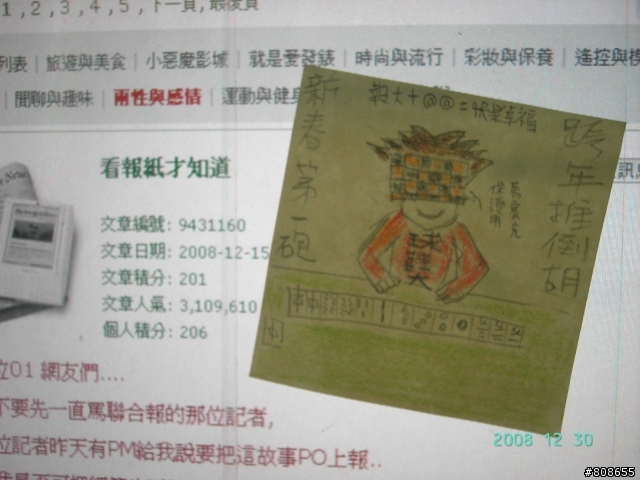 1 , 2 , 3 , 4 , 5 , 下一頁, 最後頁
列表 | 旅遊與美食 | 小惡魔影城 | 就是愛發錶 | 時尚與流行 | 彩妝與保養 | 遙控與模
閒聊與趣味 | 兩性與感情 | 運動與健
看報紙才知道
文章編號: 9431160
文章日期: 2008-12-15
文章積分: 201
文章人氣: 3,109,610
個人積分: 206
位01 網友們....
不要先一直罵聯合報的那位記者,
位記者昨天有PM給我說要把這故事PO上報..
新春第一砲
跨年推倒胡
2008 12 30
#808655